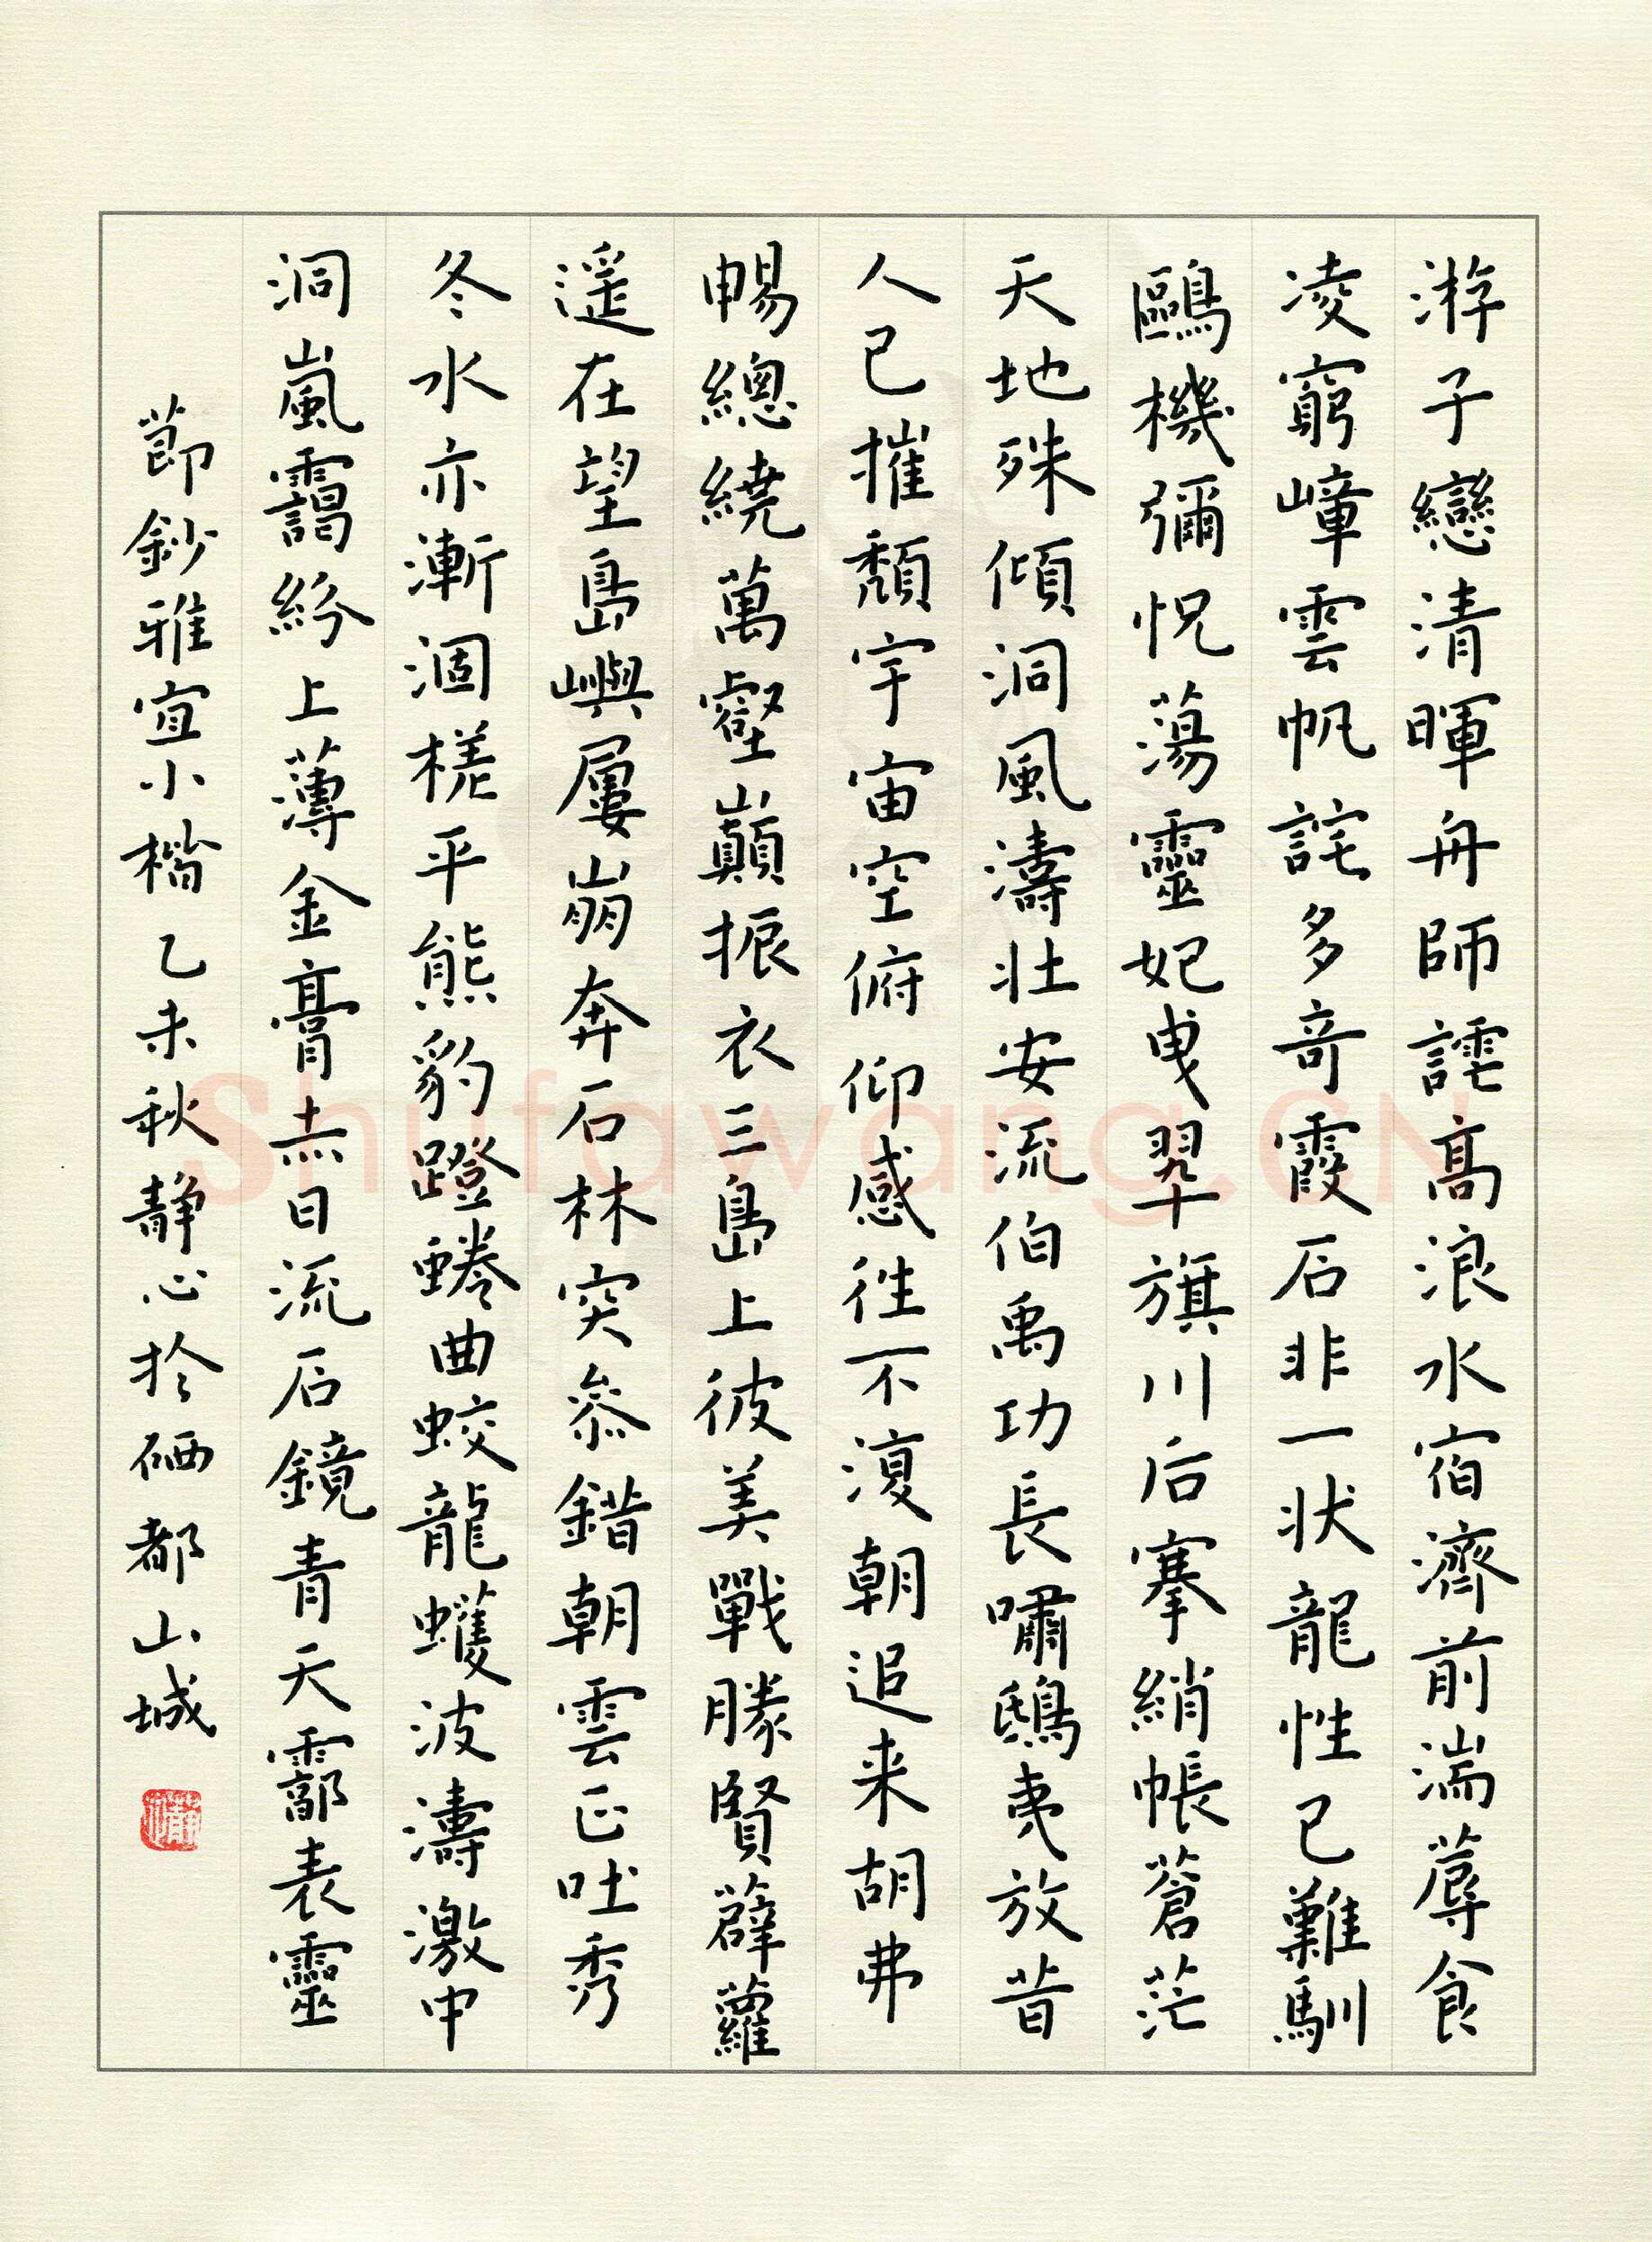 游子戀清暉舟師諲高浪水宿濟前湍蓐食
凌窮嶂雲帆詫多奇霞石非一狀龍性已難馴
鷗機彌怳蕩靈妃曳翠旗川后搴綃帳蒼茫
天地殊傾洞風濤壯安流伯禹功長嘯鴟夷放昔
人已摧頹宇宙空俯仰感往不復朝追来胡弗
暢緫繞萬壑巔振衣三島上彼美戰勝賢薜蘿
遥在望島嶼屢崩奔石林突叅錯朝雲正吐秀
冬水亦漸涸槎平熊豹蹬蜷曲蛟龍蠖波濤激中
洞嵐靄紛上薄金膏赤日流石鏡青天霩表靈
節鈔雅宜小檣乙未秋静心於硒都山城
Shufawang.CN